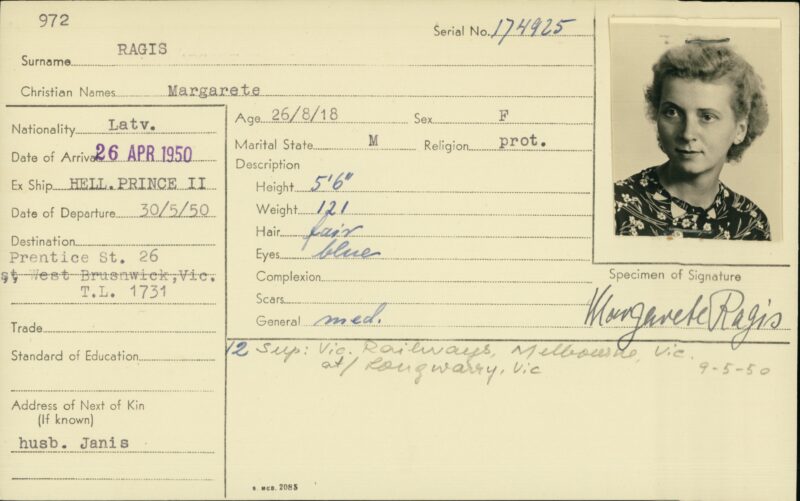 972
Serial No. 174925
Surname RAGIS
Christian Names Margarete
Nationality Latv.
Date of Arrival 26 APR 1950
Ex Ship HELL.PRINCE II
Date of Departure 30/5/50
Destination
Prentice St. 26
st, West Brusnwick,Vic.
T.L. 1731
Trade
Standard of Education
Address of Next of Kin
(If known)
husb. Janis
Age 26/8/18 Sex F
Marital State M Religion prot.
Description
Height 5'6"
Weight 121
Hair fair
Eyes blue
Complexion
Scars
General med.
Specimen of Signature
Margarete Ragis
12 Sup: Vic. Railways, Melbourne, Vic.
at/ Longwarry, Vic 9-5-50
S. MCD. 2085